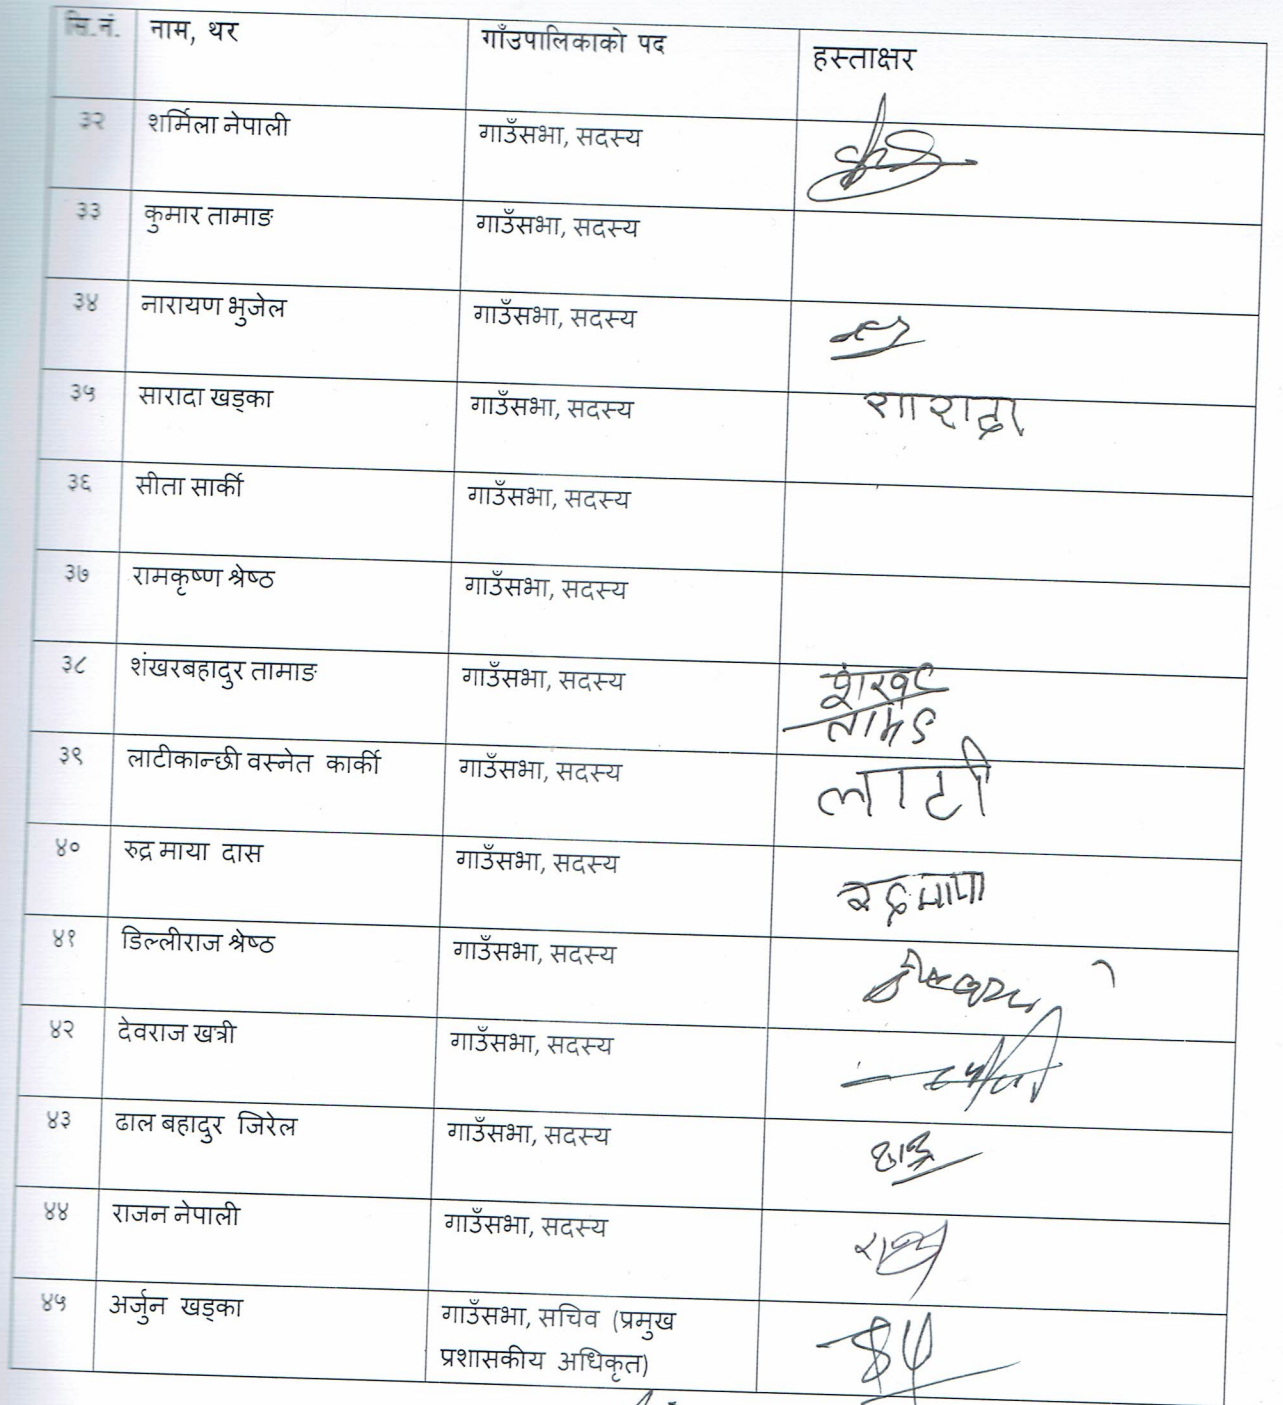 सि.नं. नाम, थर गाँउपालिकाको पद हस्ताक्षर
३२ शर्मिला नेपाली गाउँसभा, सदस्य
३३ कुमार तामाङ गाउँसभा, सदस्य
३४ नारायण भुजेल गाउँसभा, सदस्य
३५ सारादा खड्का गाउँसभा, सदस्य शारादा
३६ सीता सार्की गाउँसभा, सदस्य
३७ रामकृष्ण श्रेष्ठ गाउँसभा, सदस्य
३८ शंखरबहादुर तामाङ गाउँसभा, सदस्य
३९ लाटीकान्छी वस्नेत कार्की गाउँसभा, सदस्य लाटी
४० रुद्र माया दास गाउँसभा, सदस्य
४१ डिल्लीराज श्रेष्ठ गाउँसभा, सदस्य
४२ देवराज खत्री गाउँसभा, सदस्य
४३ ढाल बहादुर जिरेल गाउँसभा, सदस्य
४४ राजन नेपाली गाउँसभा, सदस्य
४५ अर्जुन खड्का गाउँसभा, सचिव (प्रमुख
प्रशासकीय अधिकृत)